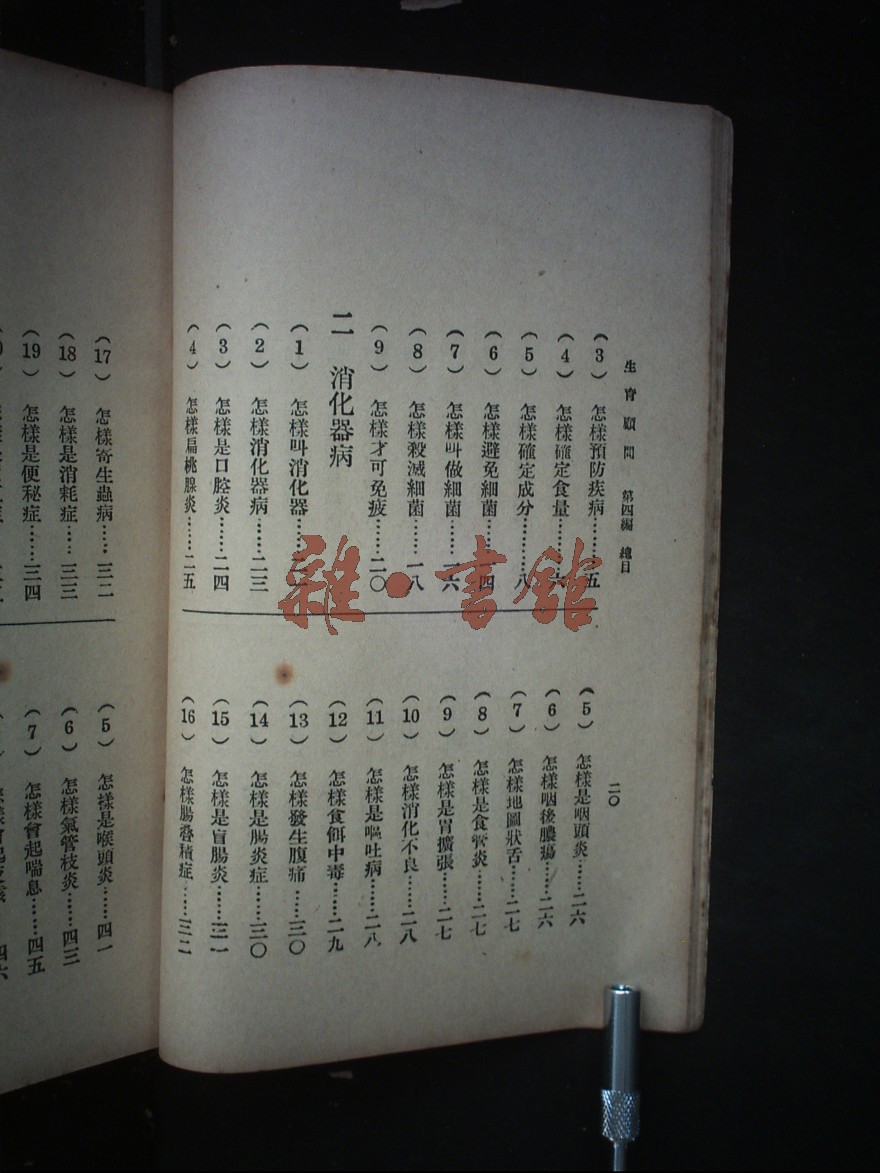 生育顧問 第四編 總目
二〇
（3）怎樣預防疾病………五
（4）怎樣確定食量………六
（5）怎樣確定成分………八
（6）怎樣避免細菌……一四
（7）怎樣叫做細菌……一六
（8）怎樣殺滅細菌……一八
（9）怎樣才可免疫……二〇
二 消化器病
（1）怎樣叫消化器……
（2）怎樣消化器病……二三
（3）怎樣是口腔炎……二四
（4）怎樣扁桃腺炎……二五
（5）怎樣是咽頭炎……二六
（6）怎樣咽後膿瘍……二六
（7）怎樣地圖狀舌……二七
（8）怎樣是食管炎……二七
（9）怎樣是胃擴張……二七
（10）怎樣消化不良……二八
（11）怎樣是嘔吐病……二八
（12）怎樣食餌中毒……二九
（13）怎樣發生腹痛……三〇
（14）怎樣是腸炎症……三〇
（15）怎樣是盲腸炎……三一
（16）怎樣腸疊積症……三二
（17）怎樣寄生蟲病……三二
（18）怎樣是消耗症……三三
（19）怎樣是便秘症……三四
（5）怎樣是喉頭炎……四一
（6）怎樣氣管枝炎……四三
（7）怎樣會起喘息……四五
雜·書館